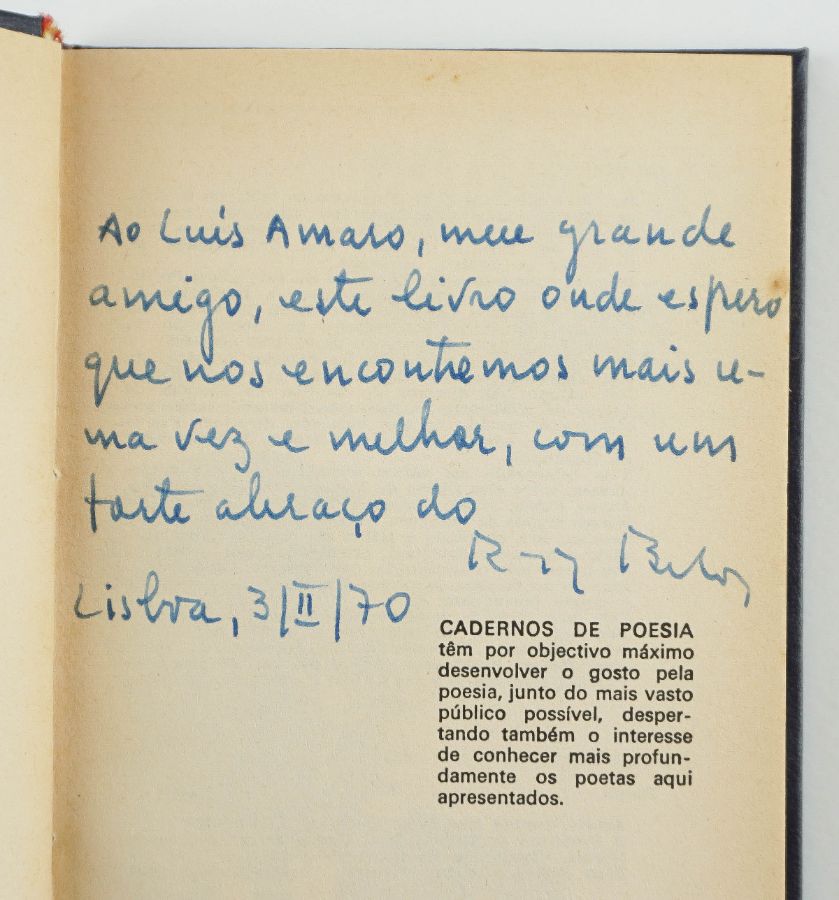 Ao Luís Amaro, meu grande
amigo, este livro onde espero
que nos encontremos mais u-
ma vez e melhor, com um
forte abraço do
Ruy Belo
Lisboa, 3/II/70
CADERNOS DE POESIA
têm por objectivo máximo
desenvolver o gosto pela
poesia, junto do mais vasto
público possível, desper-
tando também o interesse
de conhecer mais profun-
damente os poetas aqui
apresentados.